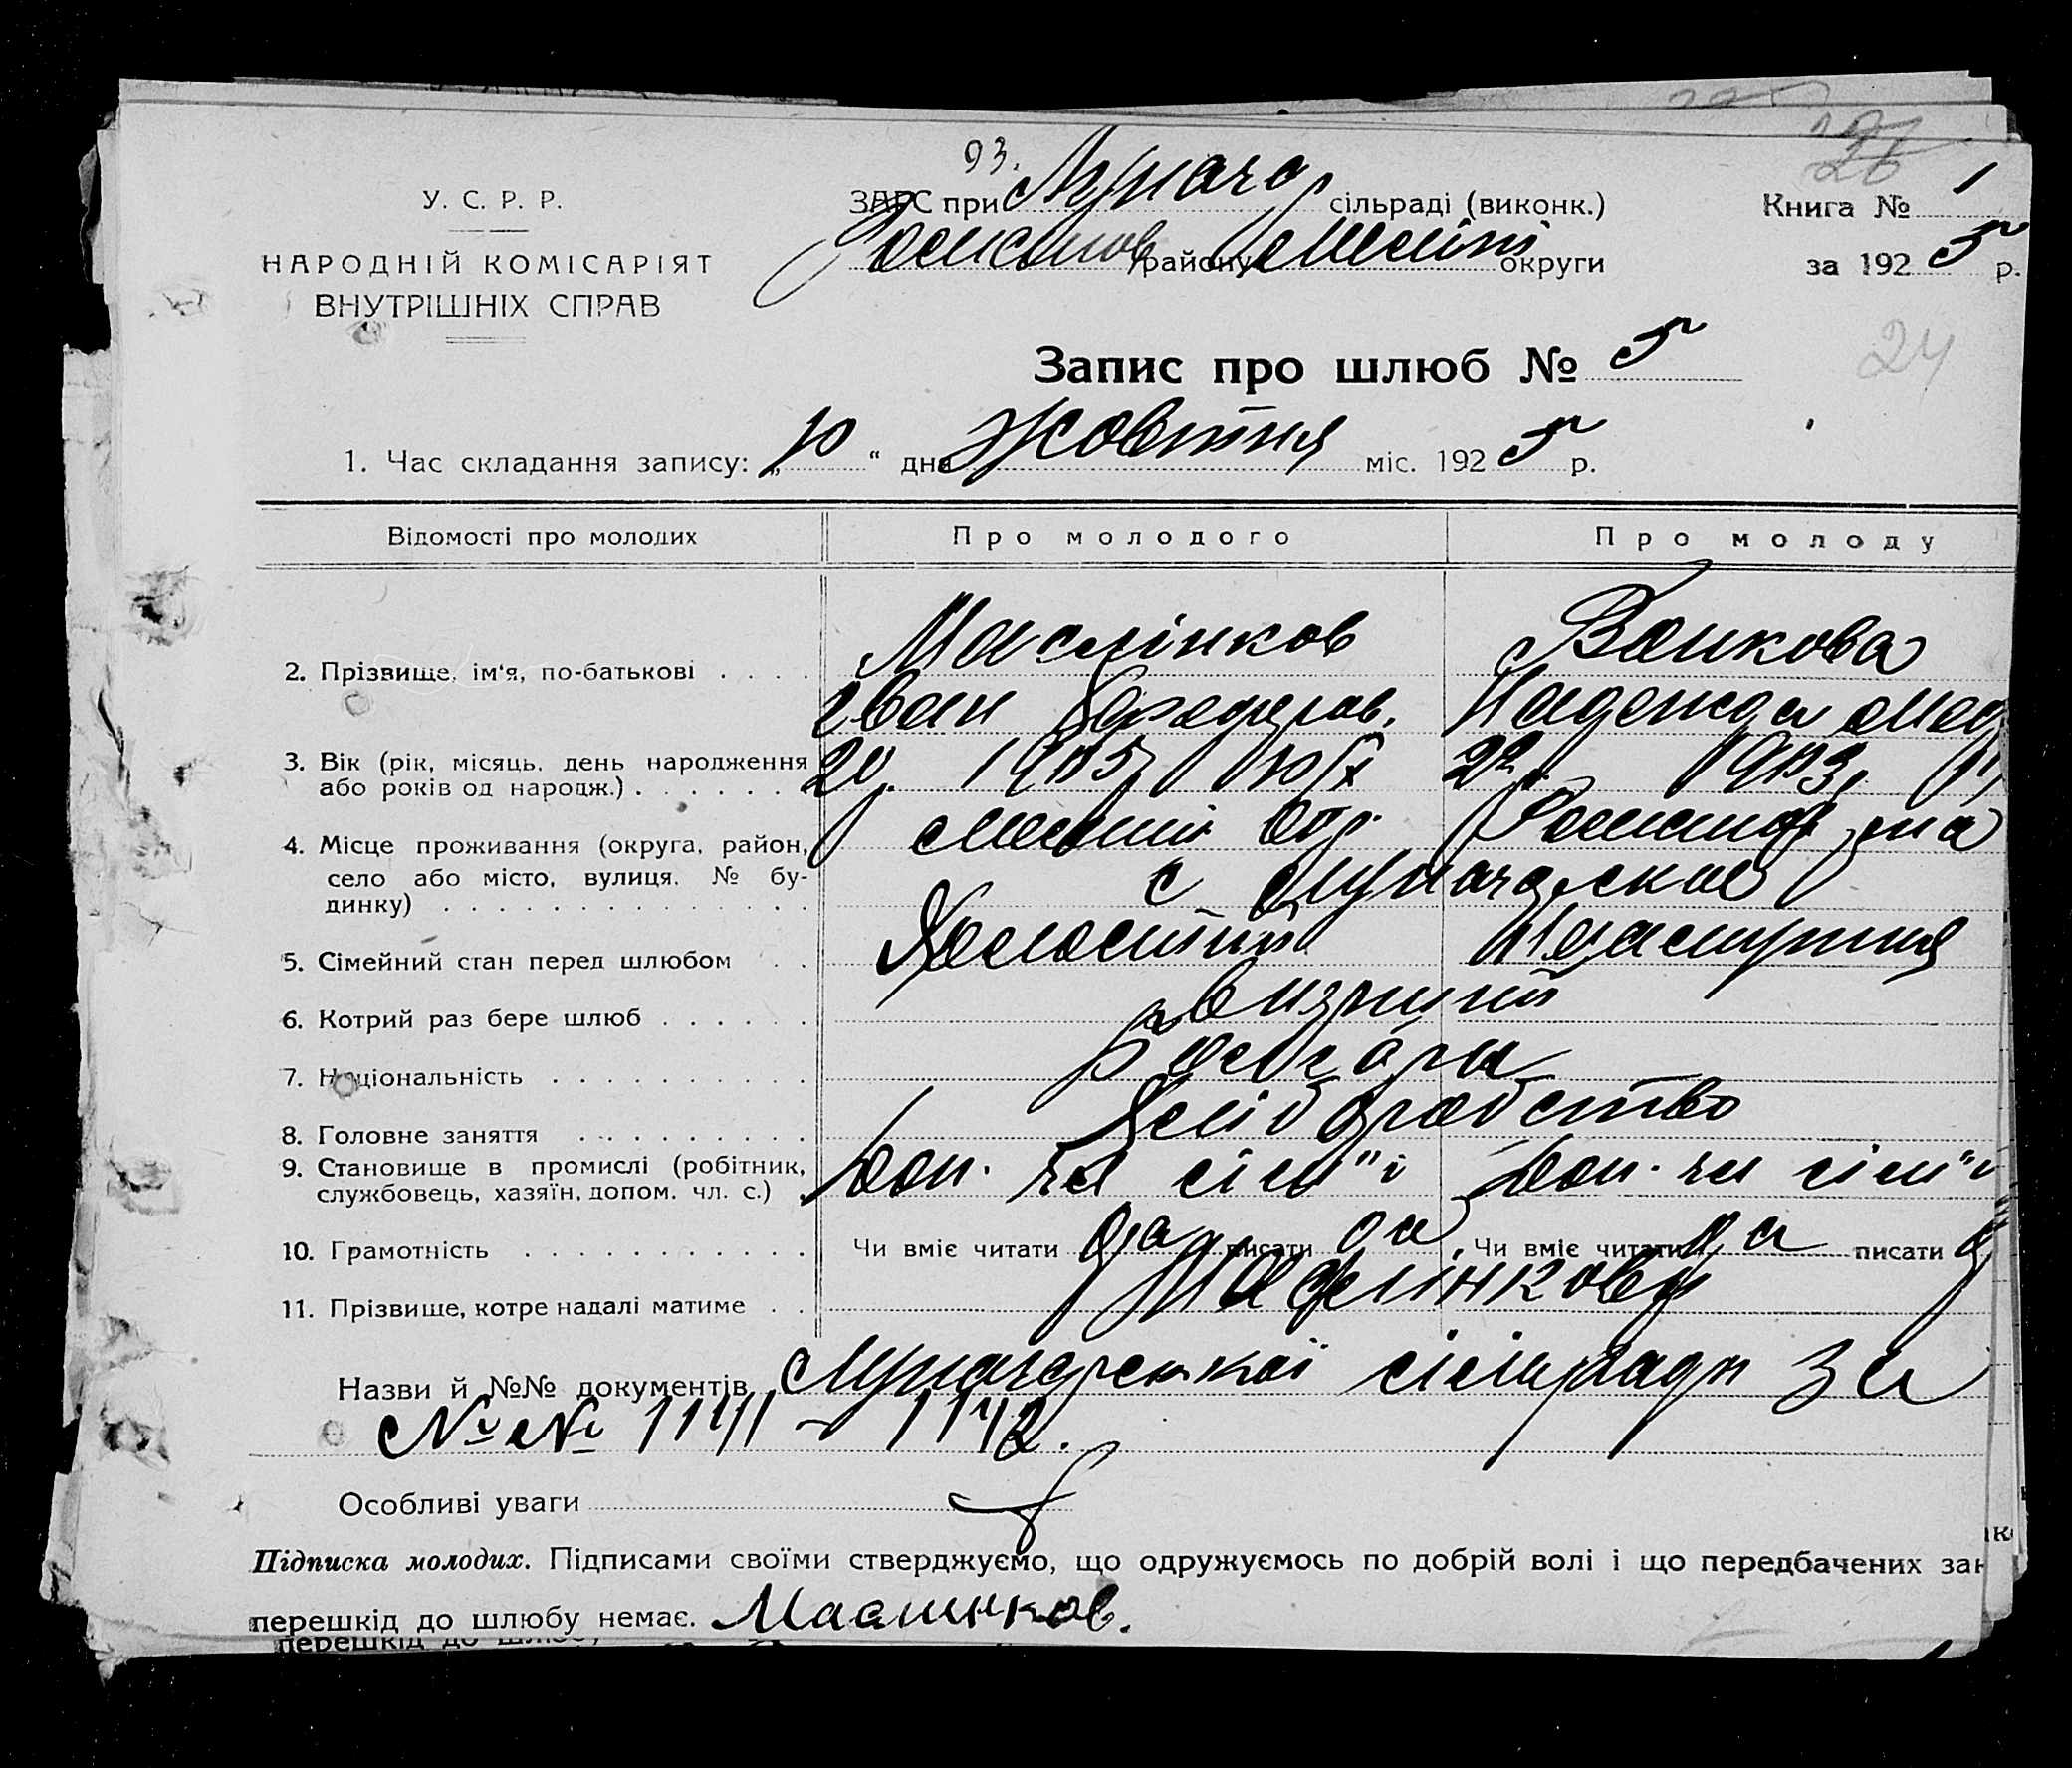 93.
У. С. Р. Р.
НАРОДНІЙ КОМІСАРІЯТ
ВНУТРІШНІХ СПРАВ
ЗАГС при Луначар сільраді (виконк.)
Романов району Меліт округи
Книга № 1
за 192 5 р.
26
24
Запис про шлюб № 5
1. Час складання запису: „ 10 “ дня Жовтня міс. 192 5 р.
Відомості про молодих Про молодого Про молоду
2. Прізвище, ім‘я, по-батькові . . . . Маслінков Вонкова
Іван Надежда
3. Вік (рік, місяць, день народження 20. 1905, 22. 1903,
або років од народж.) . . . . . . .
4. Місце проживання (округа, район, Меліт Окр. Романов р-на
село або місто, вулиця, № бу- с Луначарское
динку) . . . . . . . . . . . . . .
5. Сімейний стан перед шлюбом . . Холостий
6. Котрий раз бере шлюб . . . . . .
7. Національність . . . . . . . . . . Болгари
8. Головне заняття . . . . . . . . . Хліборобство
9. Становище в промислі (робітник, Доп. чл сім"ї Доп. чл сім"ї
службовець, хазяїн, допом. чл. с.)
10. Грамотність . . . . . . . . . . . Чи вміє читати да писати да Чи вміє читати да писати
11. Прізвище, котре надалі матиме . . Маслінкови
Назви й №№ документів Луначарської сільради за
№ № 1141 – 1142.
Особливі уваги
Підписка молодих. Підписами своїми стверджуємо, що одружуємось по добрій волі і що передбачених зак
перешкід до шлюбу немає. Маслинков.
перешкід до шлюбу